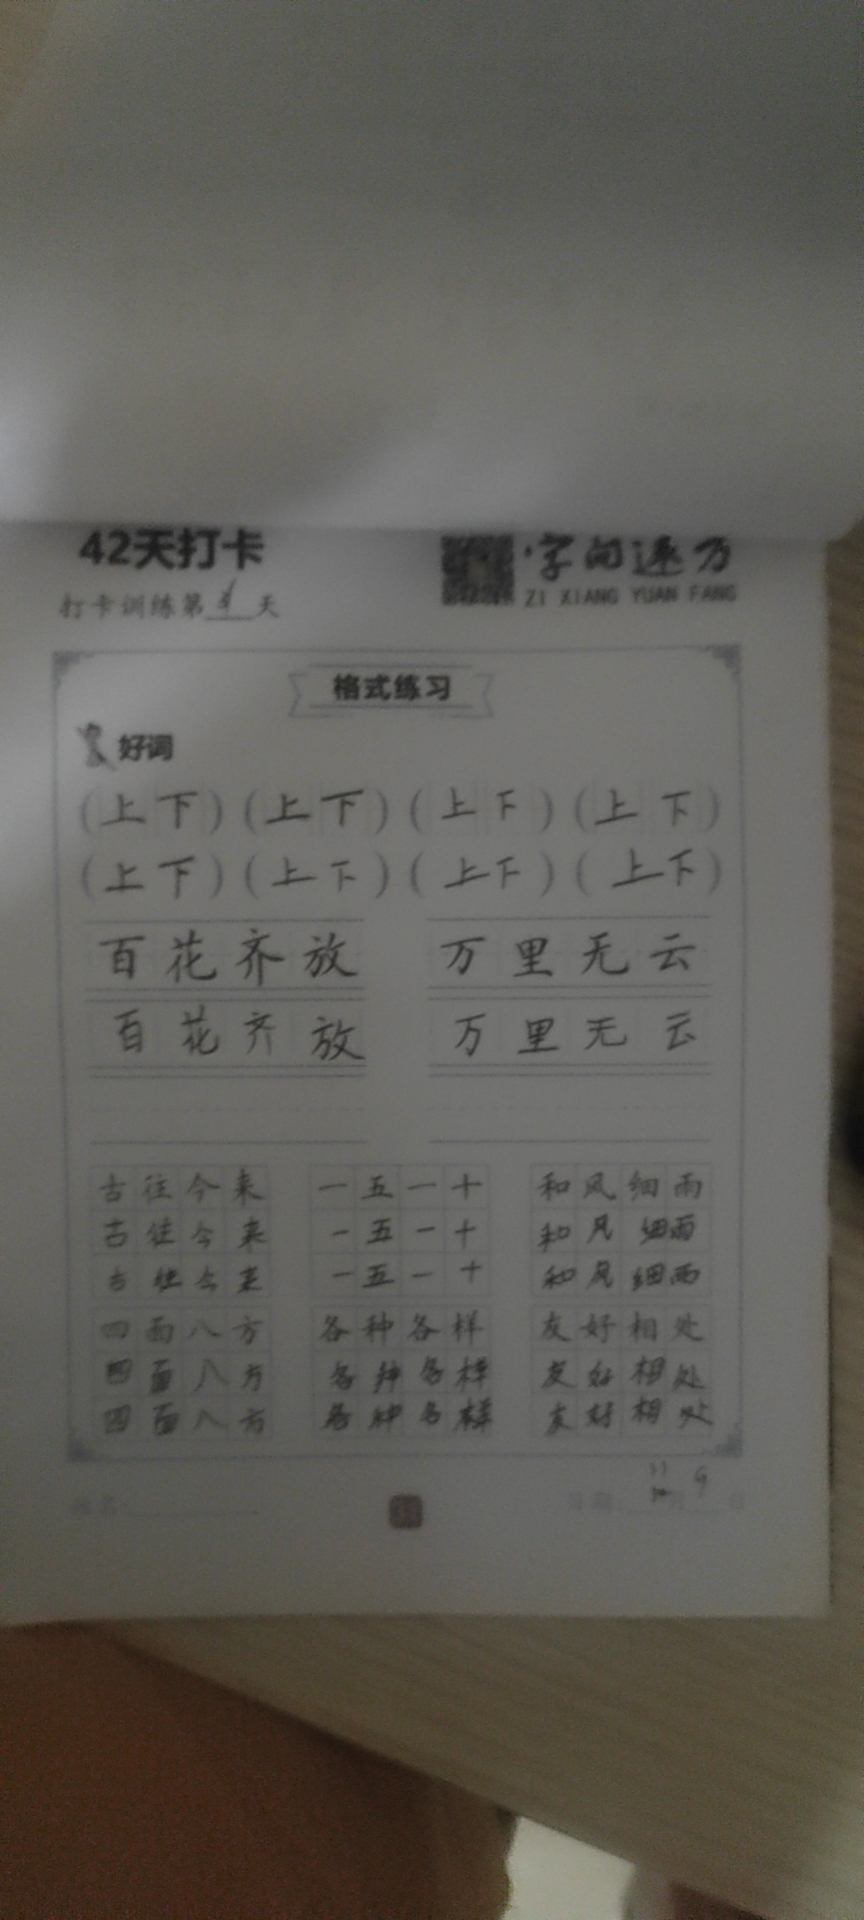 42天打卡
字向远方
ZI XIANG YUAN FANG
打卡训练第 天
格式练习
好词
(上下) (上下) (上下) (上下)
(上下) (上下) (上下) (上下)
百花齐放 万里无云
百花齐放 万里无云
古往今来 一五一十 和风细雨
古往今来 一五一十 和风细雨
古往今来 一五一十 和风细雨
四面八方 各种各样 友好相处
四面八方 各种各样 友好相处
四面八方 各种各样 友好相处
11 9
姓名 日期 月 日